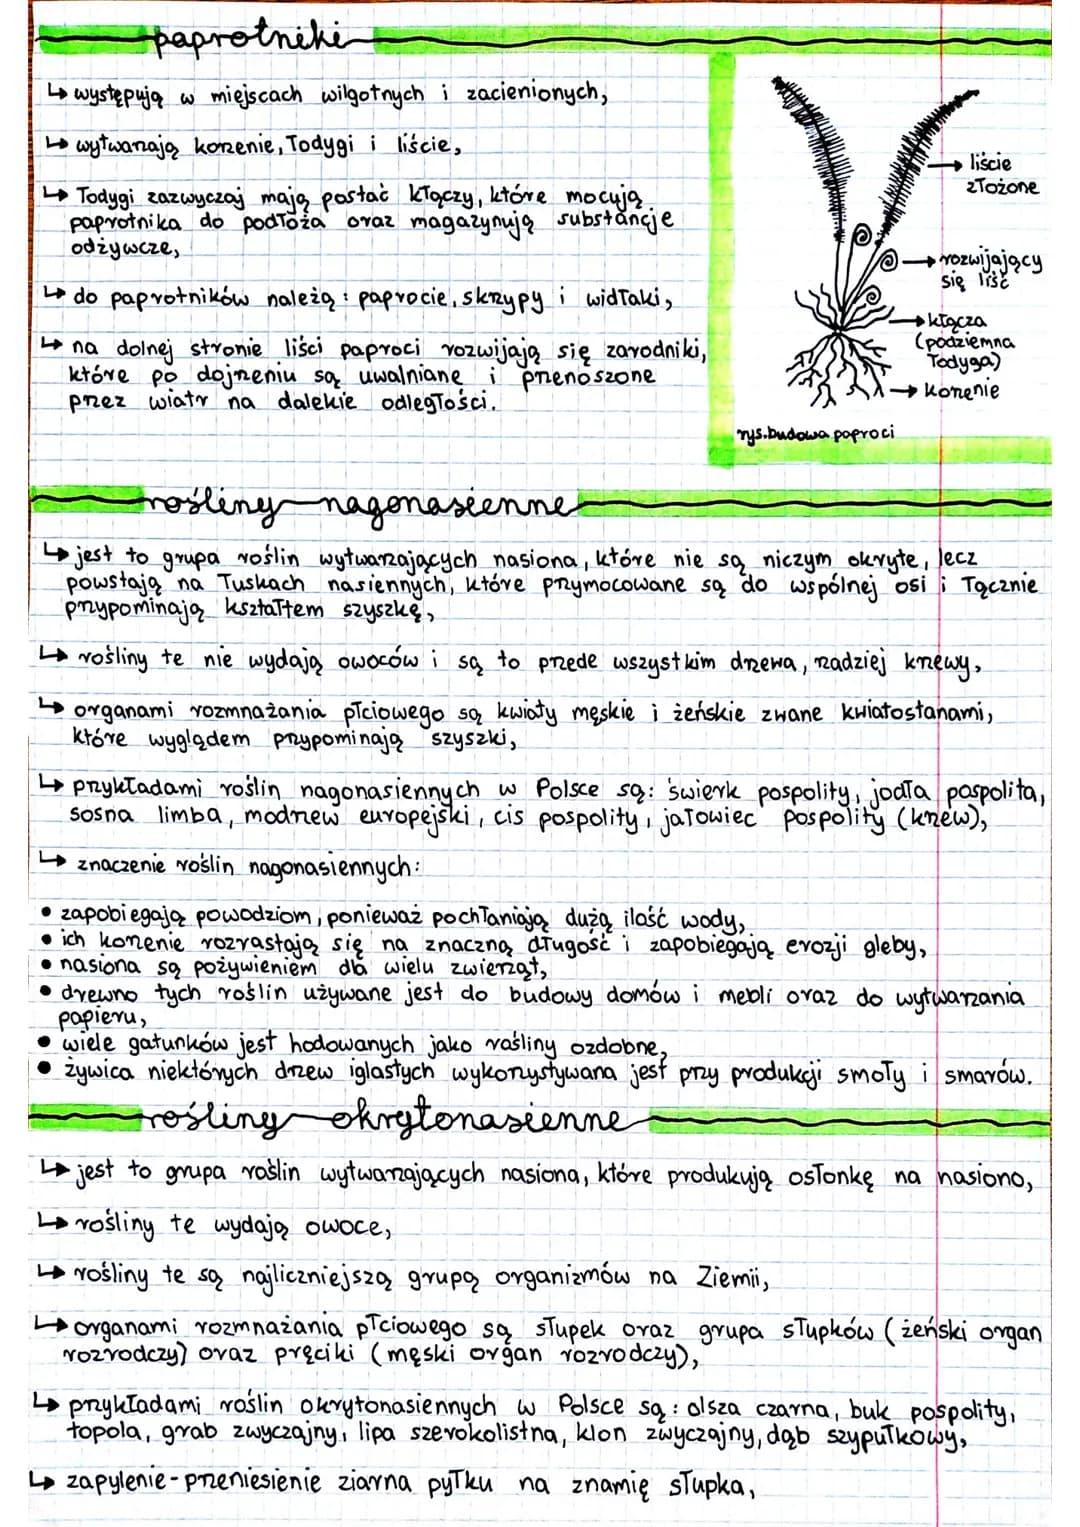 paprotniki
↳ występują w miejscach wilgotnych i zacienionych,
↳ wytwarzają korzenie, łodygi i liście,
↳ Łodygi zazwyczaj mają postać kłączy, które mocują
paprotnika do podłoża oraz magazynują substancje
odżywcze,
↳ do paprotników należą: paprocie, skrzypy i widłaki,
↳ na dolnej stronie liści paproci rozwijają się zarodniki,
które po dojrzeniu są uwalniane i przenoszone
przez wiatr na dalekie odległości.
→ liście
złożone
→ rozwijający
się liść
→ kłącza
(podziemna
łodyga)
→ korzenie
rys. budowa paproci
rośliny nagonasienne
↳ jest to grupa roślin wytwarzających nasiona, które nie są niczym okryte, lecz
powstają na łuskach nasiennych, które przymocowane są do wspólnej osi i łącznie
przypominają kształtem szyszkę,
↳ rośliny te nie wydają owoców i są to przede wszystkim drzewa, rzadziej krzewy,
↳ organami rozmnażania płciowego są kwiaty męskie i żeńskie zwane kwiatostanami,
które wyglądem przypominają szyszki,
↳ przykładami roślin nagonasiennych w Polsce są: świerk pospolity, jodła pospolita,
sosna limba, modrzew europejski, cis pospolity, jałowiec pospolity (krzew),
↳ znaczenie roślin nagonasiennych:
• zapobiegają powodziom, ponieważ pochłaniają dużą ilość wody,
• ich korzenie rozrastają się na znaczną długość i zapobiegają erozji gleby,
• nasiona są pożywieniem dla wielu zwierząt,
• drewno tych roślin używane jest do budowy domów i mebli oraz do wytwarzania
papieru,
• wiele gatunków jest hodowanych jako rośliny ozdobne,
• żywica niektórych drzew iglastych wykorzystywana jest przy produkcji smoły i smarów.
rośliny okrytonasienne
↳ jest to grupa roślin wytwarzających nasiona, które produkują osłonkę na nasiono,
↳ rośliny te wydają owoce,
↳ rośliny te są najliczniejszą grupą organizmów na Ziemii,
↳ organami rozmnażania płciowego są słupek oraz grupa słupków (żeński organ
rozrodczy) oraz pręciki (męski organ rozrodczy),
↳ przykładami roślin okrytonasiennych w Polsce są: olsza czarna, buk pospolity,
topola, grab zwyczajny, lipa szerokolistna, klon zwyczajny, dąb szypułkowy,
↳ zapylenie - przeniesienie ziarna pyłku na znamię słupka,